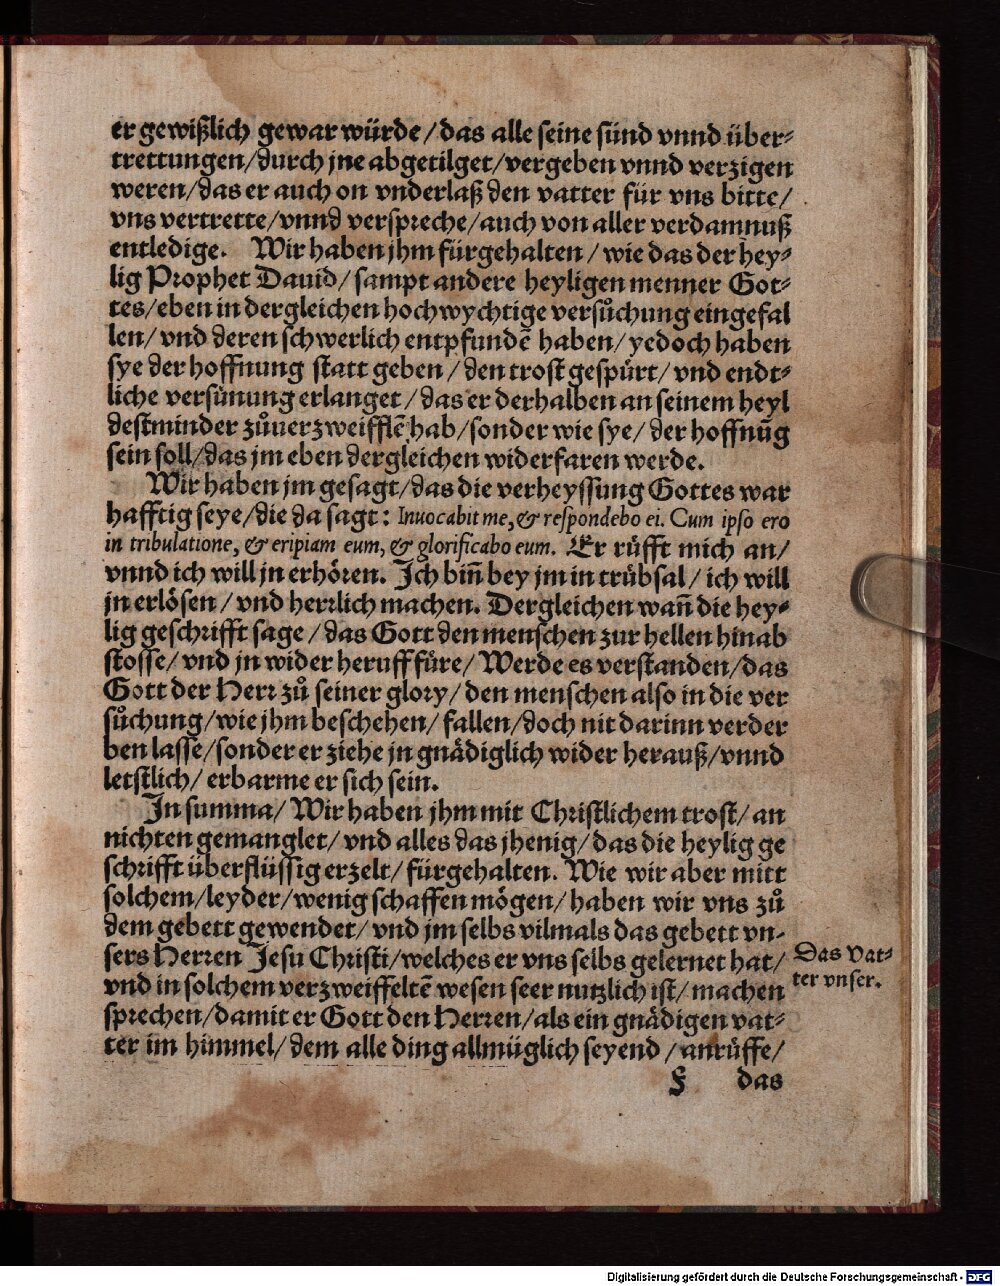 er gewißlich gewar würde / das alle seine sünd vnnd über⸗
trettungen / durch jne abgetilget / vergeben vnnd verzigen
weren / das er auch on vnderlaß den vatter für vns bitte /
vns vertrette / vnnd verspreche / auch von aller verdamnuß
entledige. Wir haben jhm fürgehalten / wie das der hey⸗
lig Prophet Dauid / sampt andere heyligen menner Got⸗
tes / eben in dergleichen hochwychtige versůchung eingefal
len / vnd deren schwerlich entpfundē haben / yedoch haben
sye der hoffnung statt geben / den trost gespürt / vnd endt⸗
liche versünung erlanget / das er derhalben an seinem heyl
destminder zůuerzweifflē hab / sonder wie sye / der hoffnūg
sein soll / das jm eben dergleichen widerfaren werde.
Wir haben jm gesagt / das die verheyssung Gottes war
hafftig seye / die da sagt : Inuocabit me, & respondebo ei. Cum ipso ero
in tribulatione, & eripiam eum, & glorificabo eum. Er rüfft mich an /
vnnd ich will jn erhören. Ich biñ bey jm in trübsal / ich will
jn erlösen / vnd herrlich machen. Dergleichen wañ die hey⸗
lig geschrifft sage / das Gott den menschen zur hellen hinab
stosse / vnd jn wider heruff füre / Werde es verstanden / das
Gott der Herr zů seiner glory / den menschen also in die ver
sůchung / wie jhm beschehen / fallen / doch nit darinn verder
ben lasse / sonder er ziehe jn gnädiglich wider herauß / vnnd
letstlich / erbarme er sich sein.
In summa / Wir haben jhm mit Christlichem trost / an
nichten gemanglet / vnd alles das jhenig / das die heylig ge
schrifft überflüssig erzelt / fürgehalten. Wie wir aber mitt
solchem / leyder / wenig schaffen mögen / haben wir vns zů
dem gebett gewendet / vnd jm selbs vilmals das gebett vn⸗
sers Herren Jesu Christi / welches er vns selbs gelernet hat /
Das Vat⸗
ter vnser.
vnd in solchem verzweiffeltē wesen seer nutzlich ist / machen
sprechen / damit er Gott den Herren / als ein gnädigen vat⸗
ter im himmel / dem alle ding allmüglich seyend / anrüffe /
F das
Digitalisierung gefördert durch die Deutsche Forschungsgemeinschaft - DFG